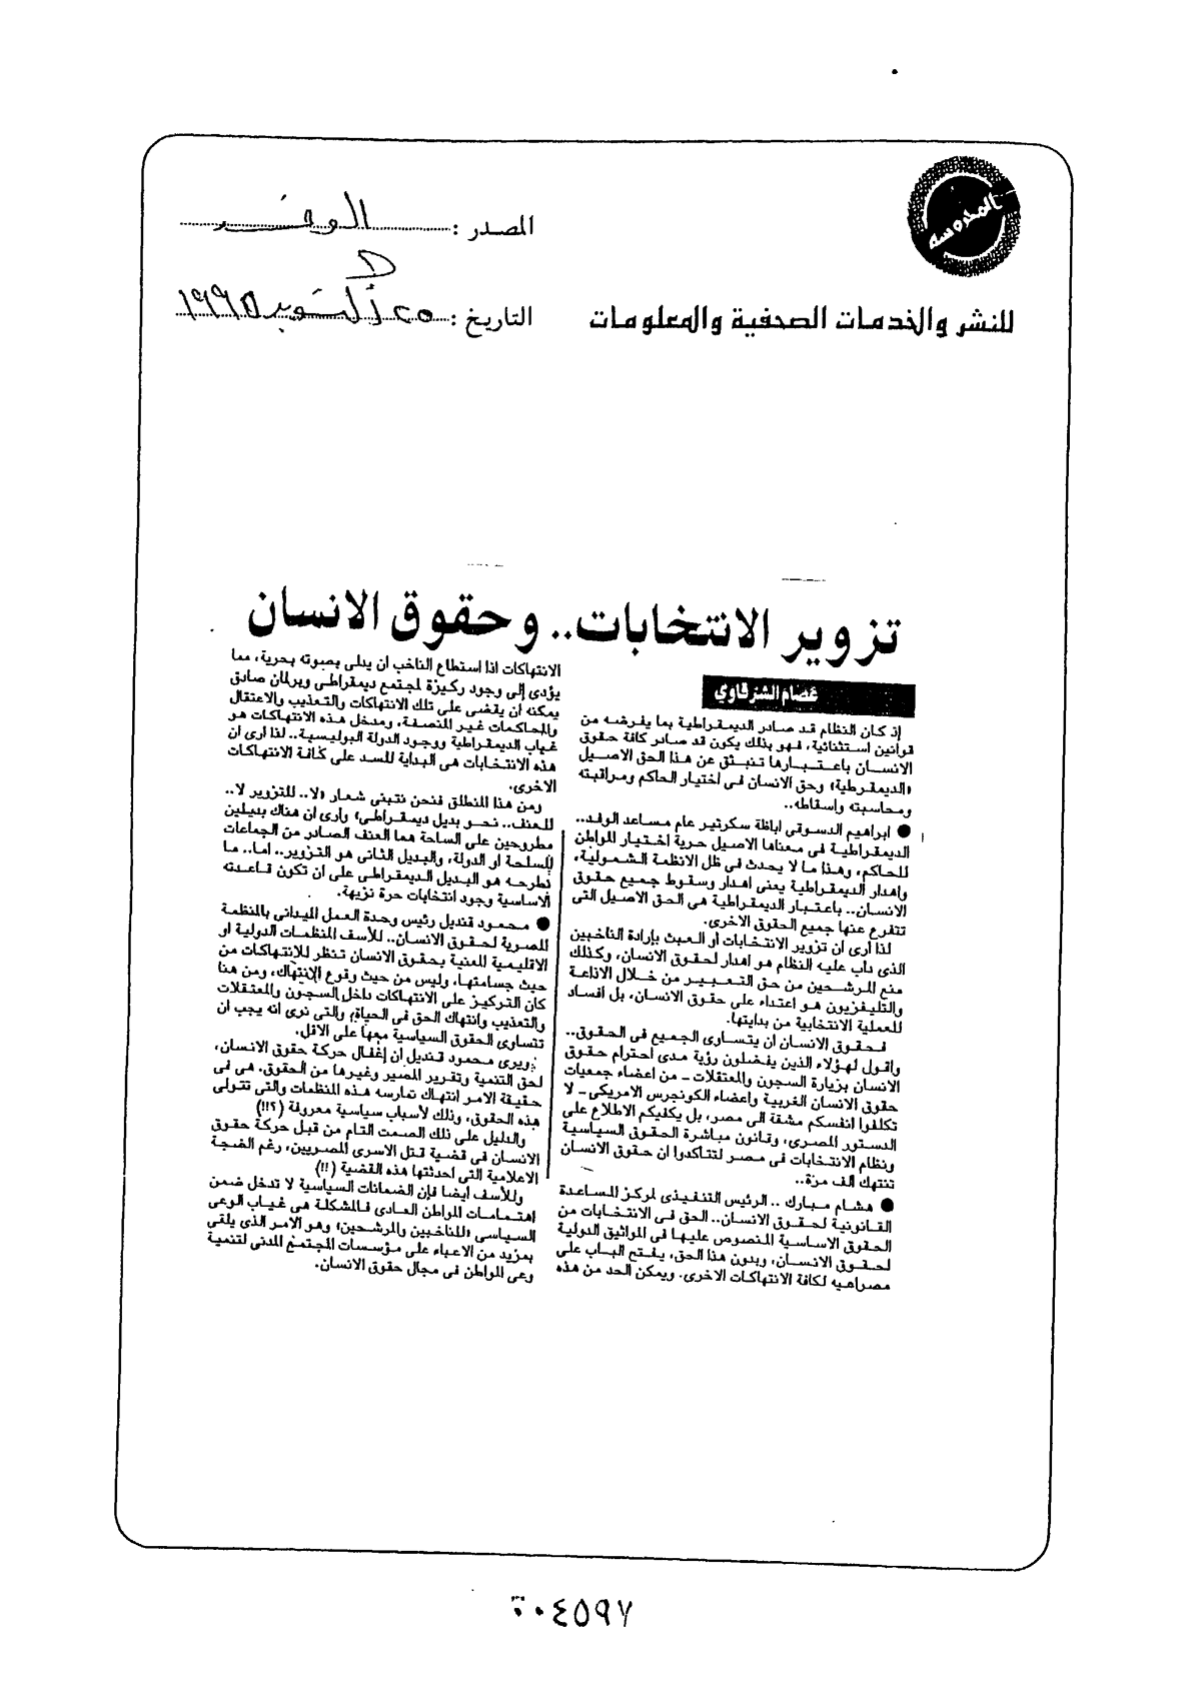 المحروسه
المصدر : الوفد
للنشر والخدمات الصحفية والمعلومات
التاريخ : ٢٥ أكتوبر ١٩٩٥
تزوير الانتخابات.. وحقوق الانسان
عصام الشرقاوي
إذ كان النظام قد صادر الديمقراطية بما يفرضه من
قوانين استثنائية، فهو بذلك يكون قد صادر كافة حقوق
الانسان باعتبارها تنبثق عن هذا الحق الاصيل
«الديمقرطية» وحق الانسان فى اختيار الحاكم ومراقبته
ومحاسبته وإسقاطه..
● ابراهيم الدسوقى اباظة سكرتير عام مساعد الوفد..
الديمقراطية فى معناها الاصيل حرية اختيار المواطن
للحاكم، وهذا ما لا يحدث فى ظل الانظمة الشمولية،
واهدار الديمقراطية يعنى اهدار وسقوط جميع حقوق
الانسان.. باعتبار الديمقراطية هى الحق الاصيل التى
تتفرع عنها جميع الحقوق الاخرى.
لذا أرى ان تزوير الانتخابات أو العبث بإرادة الناخبين
الذى دأب عليه النظام هو اهدار لحقوق الانسان، وكذلك
منع المرشحين من حق التعبير من خلال الاذاعة
والتليفزيون هو اعتداء على حقوق الانسان، بل أفساد
للعملية الانتخابية من بدايتها.
فحقوق الانسان ان يتساوى الجميع فى الحقوق..
واقول لهؤلاء الذين يفضلون رؤية مدى احترام حقوق
الانسان بزيارة السجون والمعتقلات - من اعضاء جمعيات
حقوق الانسان الغربية واعضاء الكونجرس الامريكى - لا
تكلفوا انفسكم مشقة الى مصر، بل يكفيكم الاطلاع على
الدستور المصرى، وقانون مباشرة الحقوق السياسية
ونظام الانتخابات فى مصر لتتاكدوا ان حقوق الانسان
تنتهك الف مرة..
● هشام مبارك .. الرئيس التنفيذى لمركز المساعدة
القانونية لحقوق الانسان.. الحق فى الانتخابات من
الحقوق الاساسية المنصوص عليها فى المواثيق الدولية
لحقوق الانسان، وبدون هذا الحق، يفتح الباب على
مصراعيه لكافة الانتهاكات الاخرى. ويمكن الحد من هذه
الانتهاكات اذا استطاع الناخب ان يدلى بصوته بحرية، مما
يؤدى إلى وجود ركيزة لمجتمع ديمقراطى وبرلمان صادق
يمكنه ان يقضى على تلك الانتهاكات والتعذيب والاعتقال
والمحاكمات غير المنصفة، ومدخل هذه الانتهاكات هو
غياب الديمقراطية ووجود الدولة البوليسية.. لذا ارى ان
هذه الانتخابات هى البداية للسد على كافة الانتهاكات
الاخرى.
ومن هذا المنطلق فنحن نتبنى شعار «لا.. للتزوير لا..
للعنف.. نحو بديل ديمقراطى» وارى ان هناك بديلين
مطروحين على الساحة هما العنف الصادر من الجماعات
المسلحة او الدولة، والبديل الثانى هو التزوير.. اما.. ما
نطرحه هو البديل الديمقراطى على ان تكون قاعدته
الاساسية وجود انتخابات حرة نزيهة.
● محمود قنديل رئيس وحدة العمل الميدانى بالمنظمة
المصرية لحقوق الانسان.. للأسف المنظمات الدولية او
الاقليمية المعنية بحقوق الانسان تنظر للانتهاكات من
حيث جسامتها، وليس من حيث وقوع الانتهاك، ومن هنا
كان التركيز على الانتهاكات داخل السجون والمعتقلات
والتعذيب وانتهاك الحق فى الحياة، والتى نرى انه يجب ان
تتساوى الحقوق السياسية معها على الاقل.
ويرى محمود قنديل ان إغفال حركة حقوق الانسان،
لحق التنمية وتقرير المصير وغيرها من الحقوق. هى فى
حقيقة الامر انتهاك تمارسه هذه المنظمات والتى تتولى
هذه الحقوق، وذلك لأسباب سياسية معروفة (؟!!)
والدليل على ذلك الصمت التام من قبل حركة حقوق
الانسان فى قضية قتل الاسرى المصريين، رغم الضجة
الاعلامية التى احدثتها هذه القضية (!!)
وللأسف أيضا فإن الضمانات السياسية لا تدخل ضمن
اهتمامات المواطن العادى فالمشكلة هى غياب الوعى
السياسى «للناخبين والمرشحين» وهو الامر الذى يلقى
بمزيد من الاعباء على مؤسسات المجتمع المدنى لتنمية
وعى المواطن فى مجال حقوق الانسان.
٠٤٥٩٧